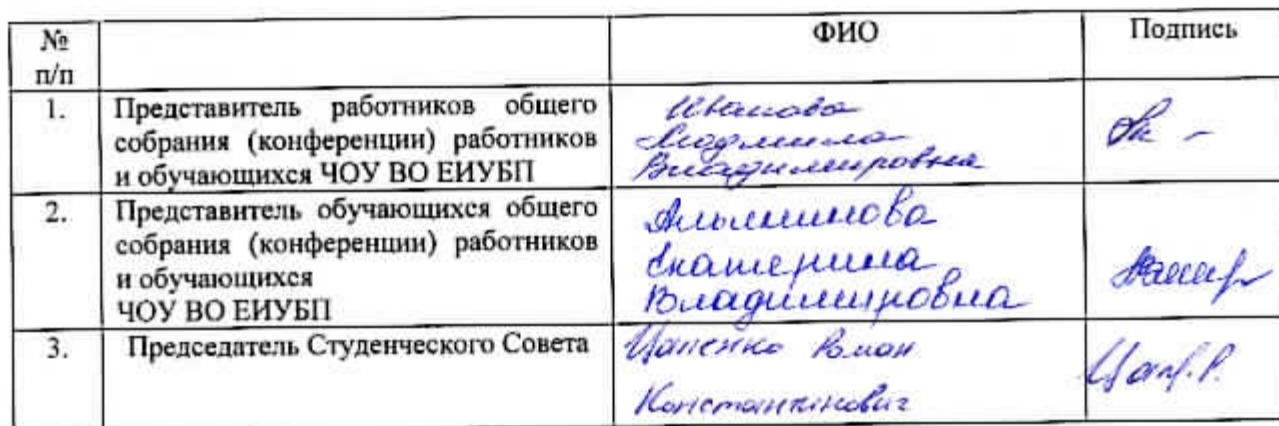 № п/п ФИО Подпись
1. Представитель работников общего собрания (конференции) работников и обучающихся ЧОУ ВО ЕИУБП
Иванова
Людмила
Владимировна
2. Представитель обучающихся общего собрания (конференции) работников и обучающихся
ЧОУ ВО ЕИУБП
Екатерина
Владимировна
3. Председатель Студенческого Совета
Роман
Константинович